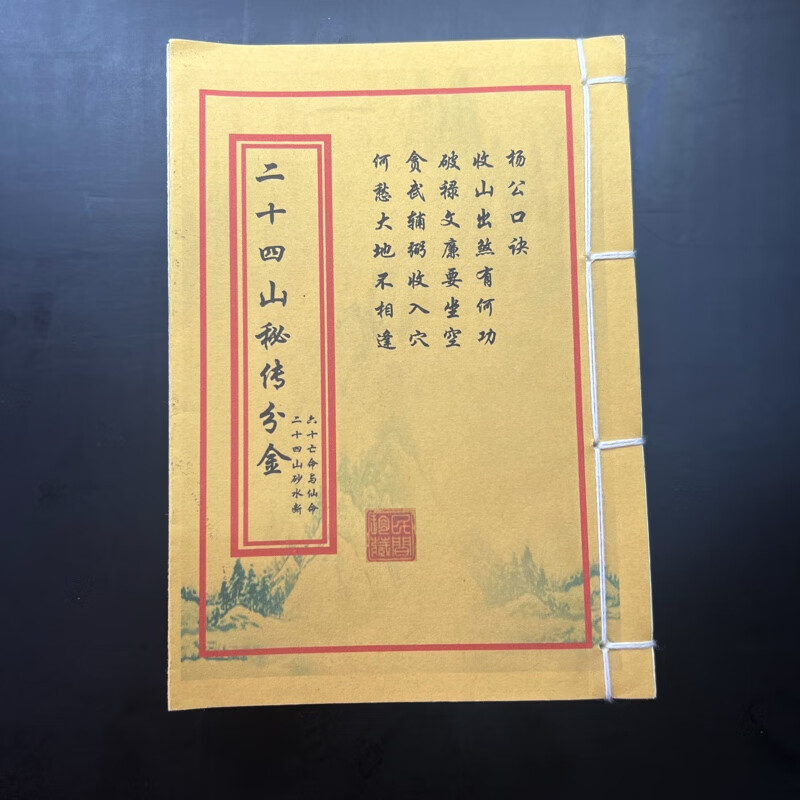 杨公口诀
收山出煞有何功
破禄文廉要坐空
贪武辅弼收入穴
何愁大地不相逢
二十四山秘传分金
六十亡命与仙命
二十四山砂水断
民间